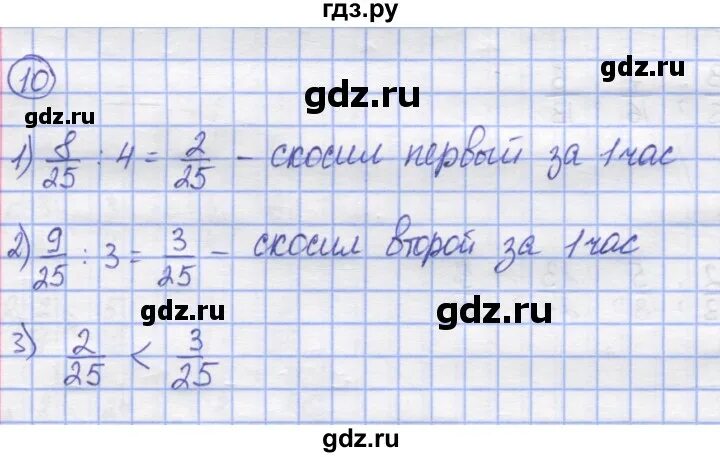 гдз.ру
10
gdz.ru
gdz.ru
gdz.ru
1) 8/25 : 4 = 2/25 – скосил первый за 1 час
2) 9/25 : 3 = 3/25 – скосил второй за 1 час
gdz.ru
gdz.ru
3) 2/25 < 3/25
gdz.ru